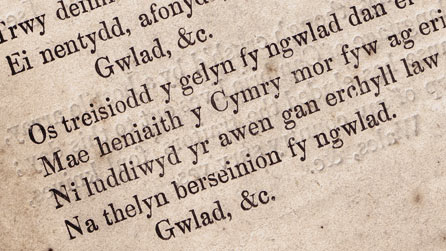 Trwy
Ei nentydd, afonydd,
Gwlad, &c.
Os treisiodd y gelyn fy ngwlad dan ei
Mae heniaith y Cymry mor fyw ag eri
Ni luddiwyd yr awen gan erchyll law
Na thelyn berseinion fy ngwlad.
Gwlad, &c.